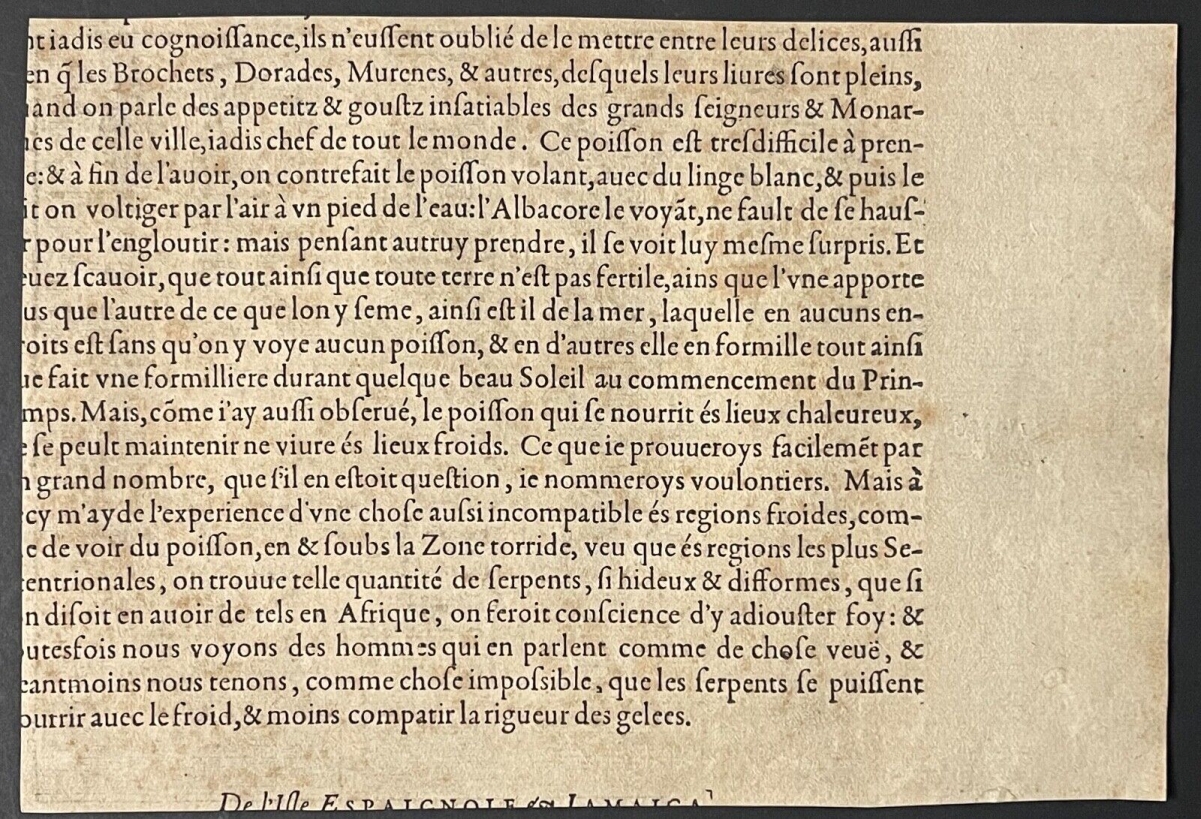 nt iadis eu cognoiſſance,ils n'euſſent oublié de le mettre entre leurs delices,auſſi
en q̃ les Brochets, Dorades, Murenes, & autres,deſquels leurs liures ſont pleins,
uand on parle des appetitz & gouſtz inſatiables des grands ſeigneurs & Monar-
ues de celle ville,iadis chef de tout le monde. Ce poiſſon eſt treſdifficile à pren-
e:& à fin de l'auoir,on contrefait le poiſſon volant,auec du linge blanc,& puis le
it on voltiger par l'air à vn pied de l'eau:l'Albacore le voyāt,ne fault de ſe hauſ-
r pour l'engloutir: mais penſant autruy prendre, il ſe voit luy meſme ſurpris. Et
euez ſcauoir,que tout ainſi que toute terre n'eſt pas fertile,ains que l'vne apporte
us que l'autre de ce que lon y ſeme, ainſi eſt il de la mer, laquelle en aucuns en-
roits eſt ſans qu'on y voye aucun poiſſon, & en d'autres elle en formille tout ainſi
ue fait vne formilliere durant quelque beau Soleil au commencement du Prin-
mps. Mais,cōme i'ay auſſi obſerué, le poiſſon qui ſe nourrit és lieux chaleureux,
e ſe peult maintenir ne viure és lieux froids. Ce que ie prouueroys facilemēt par
n grand nombre, que ſ'il en eſtoit queſtion, ie nommeroys voulontiers. Mais à
cy m'ayde l'experience d'vne choſe auſsi incompatible és regions froides,com-
e de voir du poiſſon,en & ſoubs la Zone torride, veu que és regions les plus Se-
tentrionales, on trouue telle quantité de ſerpents, ſi hideux & difformes, que ſi
n diſoit en auoir de tels en Afrique, on feroit conſcience d'y adiouſter foy: &
outesfois nous voyons des hommes qui en parlent comme de choſe veuë, &
eantmoins nous tenons, comme choſe impoſsible, que les ſerpents ſe puiſſent
ourrir auec le froid,& moins compatir la rigueur des gelees.
De l'Iſle ESPAIGNOLE & IAMAICA